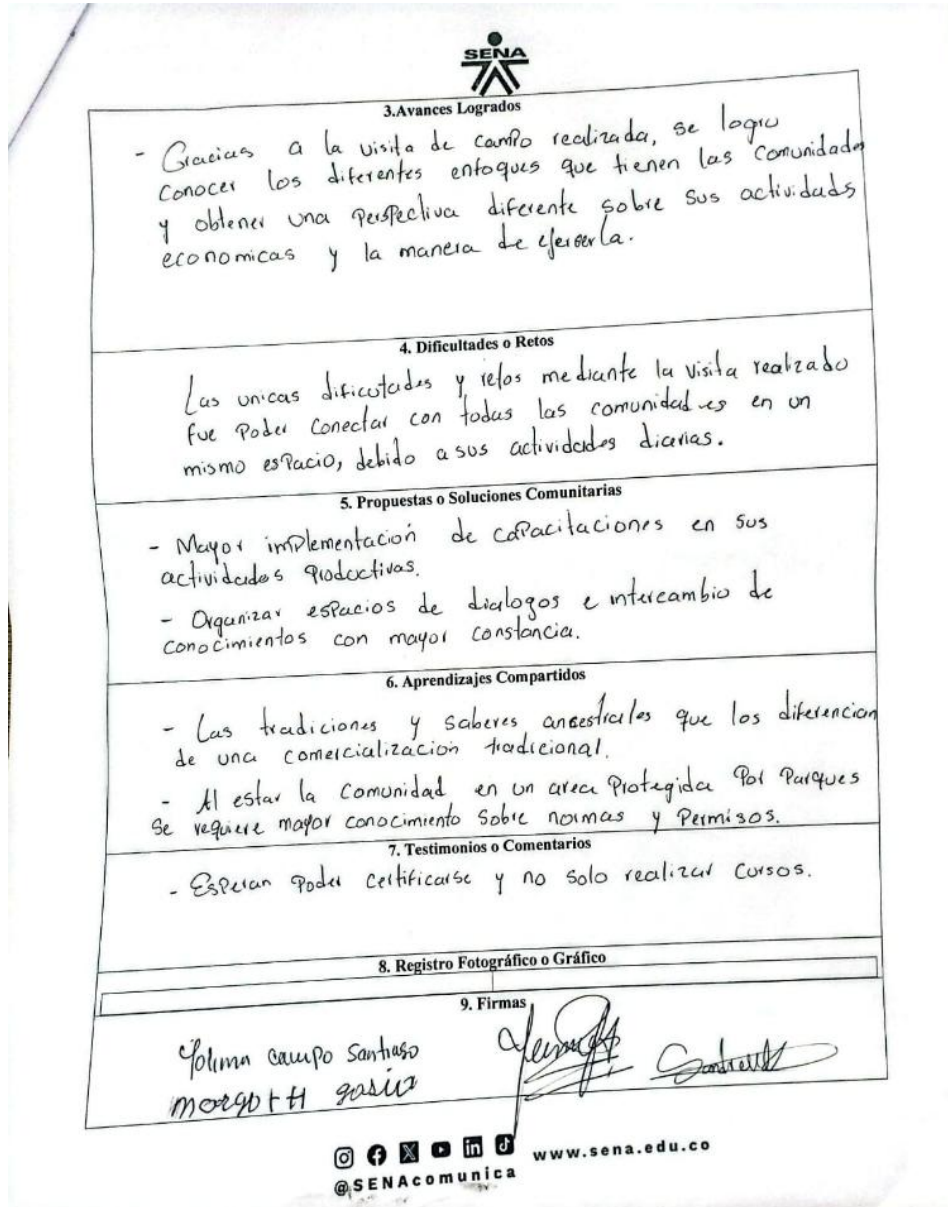 SENA
3.Avances Logrados
- Gracias a la visita de campo realizada, se logro
conocer los diferentes enfoques que tienen las comunidades
y obtener una perspectiva diferente sobre sus actividads
economicas y la manera de ejerserla.
4. Dificultades o Retos
Las unicas dificutades y retos mediante la visita realizado
fue Poder conectar con todas las comunidades en un
mismo esPacio, debido a sus actividades diarias.
5. Propuestas o Soluciones Comunitarias
- Mayor imPlementación de caPacitaciones en sus
actividades Productivas.
- Organizar esPacios de dialogos e intercambio de
conocimientos con mayor constancia.
6. Aprendizajes Compartidos
- Las tradiciones y saberes ancestrales que los diferencian
de una comercialización tradicional.
- Al estar la comunidad en un area Protegida Por Parques
se requiere mayor conocimiento sobre normas y Permisos.
7. Testimonios o Comentarios
- EsPeran Poder certificarse y no solo realizar cursos.
8. Registro Fotográfico o Gráfico
9. Firmas
Yolima campo Santiago
www.sena.edu.co
@SENAcomunica